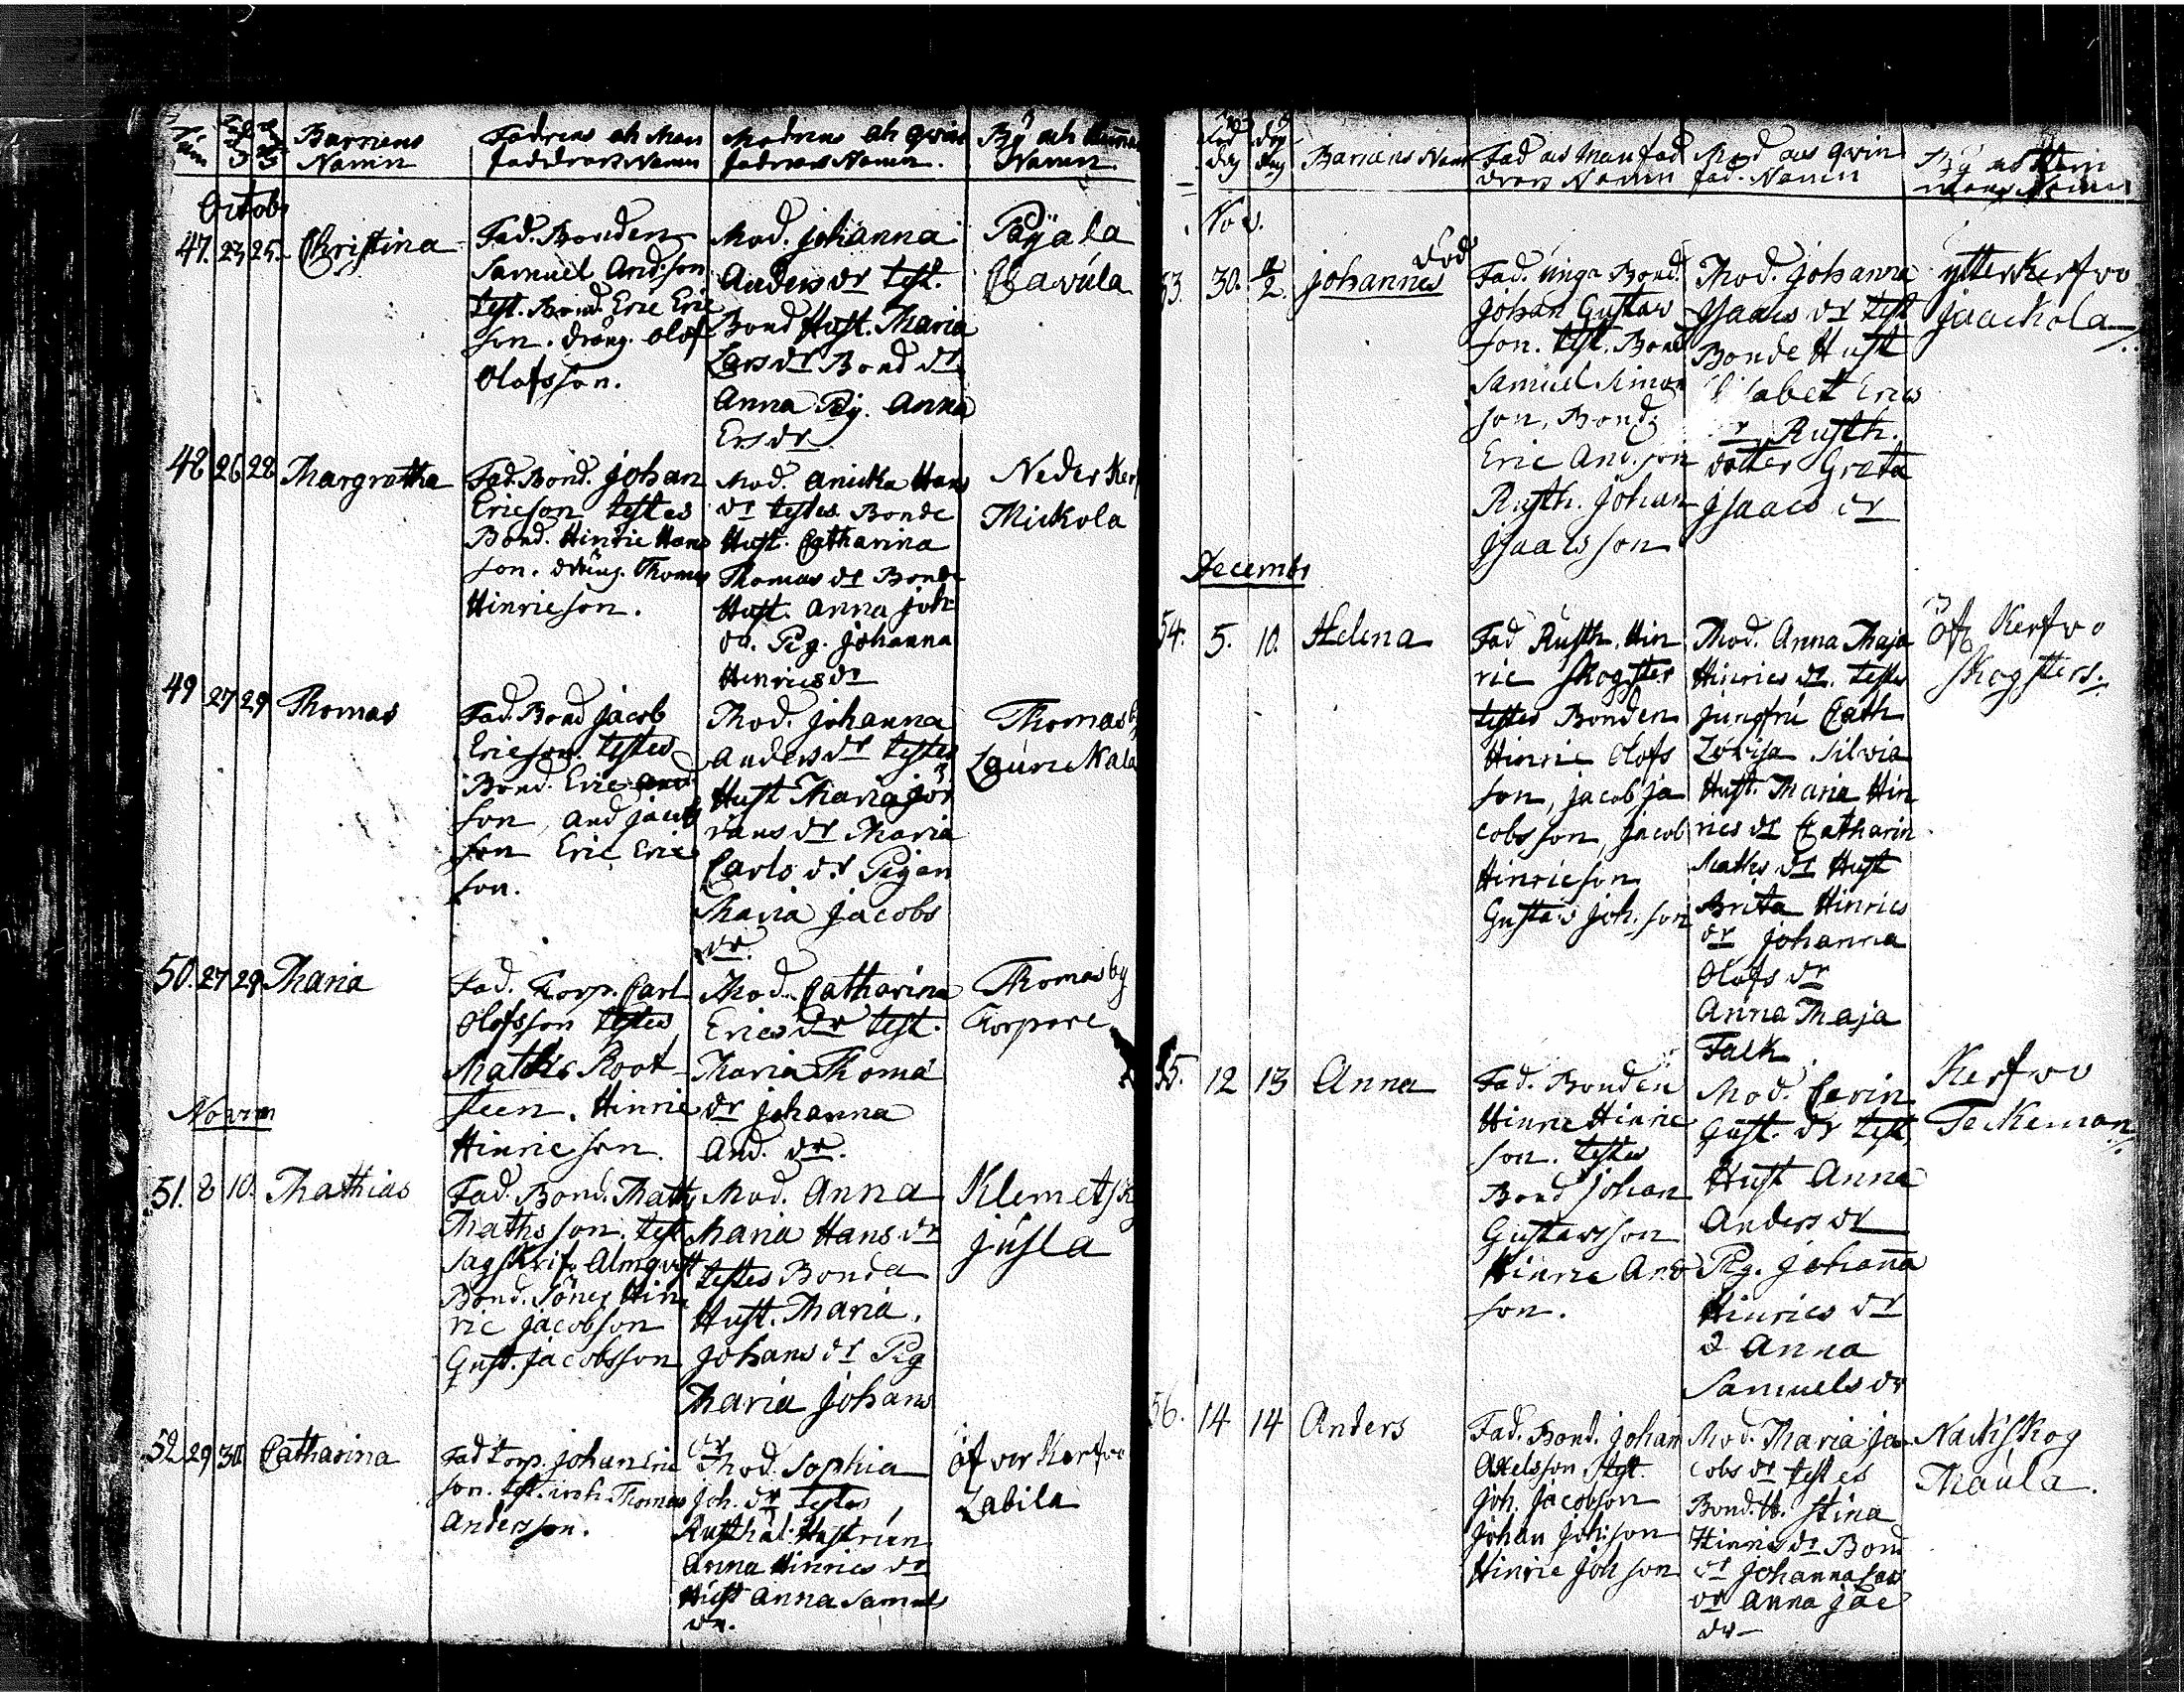 Barnens
Namn
Fadrens och Man
faddrars Namn
Modrens och qwin
fadrars Namn.
By och hemma
Namn
Octobr
47. 23 25. Christina
Fad. Bonden
Samuel And. son
test. Bond. Eric Eric
son. dräng. Olof
Olofsson.
Mod. Johanna
Anders dr test.
Bond Hust. Maria
Lars dr Bond dr
Anna Pig. Anna
Ers dr
Päyälä
Clavula
48 26 28 Margretha
Fad. Bond. Johan
Ericson testes
Bond. Hinric Hans
son. dräng. Thomas
Hinricson.
Mod. Anicka Hans
dr testes Bonde
Hust. Catharina
Thomas dr Bonde
Hust. Anna Joh
dr. Pig. Johanna
Henrics dr
Neder Kerf
Mickola
49 27 29 Thomas
Fad. Bond Jacob
Ericson. testes
Bond. Eric And
son, And Jacob
son Eric Eric
son.
Mod. Johanna
Anders dr testes
Hust Maria Jör
rans dr Maria
Carls dr Pigan
Maria Jacobs
dr.
Thomasby
Laurickala
50. 27 29 Maria
Fad. Torp. Carl
Olofsson testes
Mathis Root
steen. Hinric
Hinricson.
Mod. Catharina
Erics dr test.
Maria Thoma
dr Johanna
And. dr.
Thomasby
Torpare
Novem
51. 8 10. Mathias
Fad. Bond. Maths
Mathsson. test
Sagskrif. Almqvist
Bond. Söner Hin
ric Jacobson
Gust. Jacobsson
Mod. Anna
Maria Hans dr
testes Bonda
Hust. Maria
Johans dr Pig
Maria Johans
dr
Klemetsk
Jusla
52 29 30 Catharina
Fad torp. Johan Eric
son. test. inh. Thomas
Andersson.
Mod. Sophia
Joh. dr testes
Rusthål. Hustrun
Anna Hinrics dr
Hust Anna Samuels
dr.
Öfver Kerfvo
Labila
Föd
dag
döp
dag
Barnens Namn
Fad och Manfad
drars Namn
Mod och qwin
fad. Namn
By och Hem
mans Namn
Nov.
53. 30. 12/2. Johannes död
Fad. unga Bond.
Johan Gustaw
son. test. Bond
Samuel Simon
son, Bond.
Eric And. son
Rusth. Johan
Isaacsson
Mod. Johanna
Isaacs dr test
Bonde Hust
Elisabet Erics
dr, Rusth.
dotter Greta
Isaacs dr
Ytter Kerfvo
Jaackola
Decembr
54. 5. 10. Helena
Fad Rusth. Hin
ric Skogster
testes Bonden
Hinric Olofs
son, Jacob Ja
cobsson, Jacob
Hinricson
Gustav Joh. son
Mod. Anna Maja
Hinrics dr. testes
Jungfru Cath
Lovisa Silvia
Hust. Maria Hin
rics dr Catharin
Maths dr Hust
Brita Hinrics
dr Johanna
Olofs dr
Anna Maja
Falk
Öf. Kerfvo
Skogsters.
55. 12 13 Anna
Fad. Bonden
Hinric Hinric
son. testes
Bond Johan
Gustavsson
Hinric And
son.
Mod. Carin
Gust. dr test.
Hust Anna
Anders dr
Pig. Johanna
Hinrics dr
d Anna
Samuels dr
Kerfvo
Teckeman
56. 14 14 Anders
Fad. Bond. Johan
Axelsson. test.
Joh. Jacobson
Johan Joh. son
Hinric Joh son
Mod. Maria Ja
cobs dr testes
Bond. H. Stina
Hinrics dr Bond
dr Johanna
dr Anna Jac
dr
Nackskog
Maula.